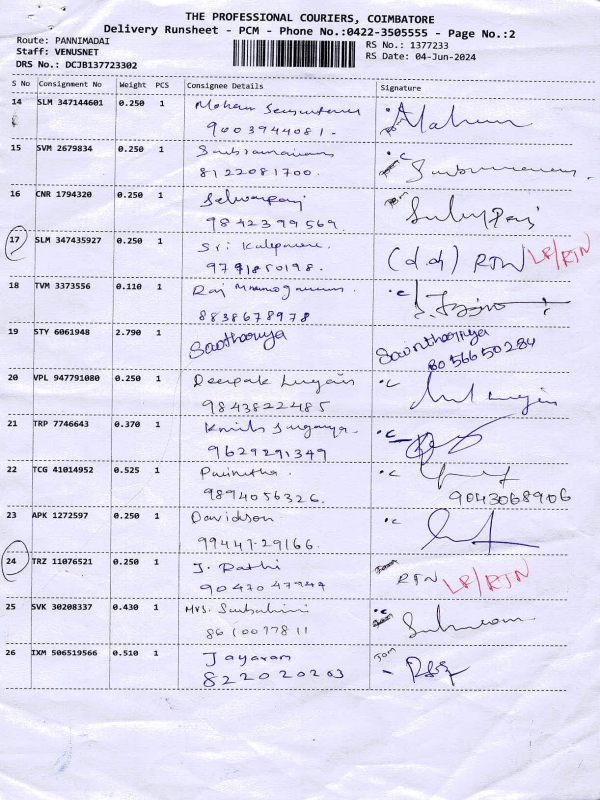 THE PROFESSIONAL COURIERS, COIMBATORE
Delivery Runsheet - PCM - Phone No.:0422-3505555 - Page No.:2
Route: PANNIMADAI
Staff: VENUSNET
DRS No.: DCJB137723302
RS No.: 1377233
RS Date: 04-Jun-2024
S No Consignment No Weight PCS Consignee Details Signature
14 SLM 347144601 0.250 1 Mohan
9003944081.
15 SVM 2679834 0.250 1
8122081700.
16 CNR 1794320 0.250 1 Selvaraj
9842399569
17 SLM 347435927 0.250 1 Sri (d.d) RTN LR/RTN
9791850198.
18 TVM 3373556 0.110 1 Raj
8838678978
19 STY 6061948 2.790 1
8056650284
20 VPL 947791080 0.250 1 Deepak
9843822485
21 TRP 7746643 0.370 1
9629291349
22 TCG 41014952 0.525 1
9894056326. 9043068906
23 APK 1272597 0.250 1 Davidson
99447-29166.
24 TRZ 11076521 0.250 1 J. Rathi RTN LR/RTN
25 SVK 30208337 0.430 1 Mrs.
26 IXM 506519566 0.510 1 Jayaram